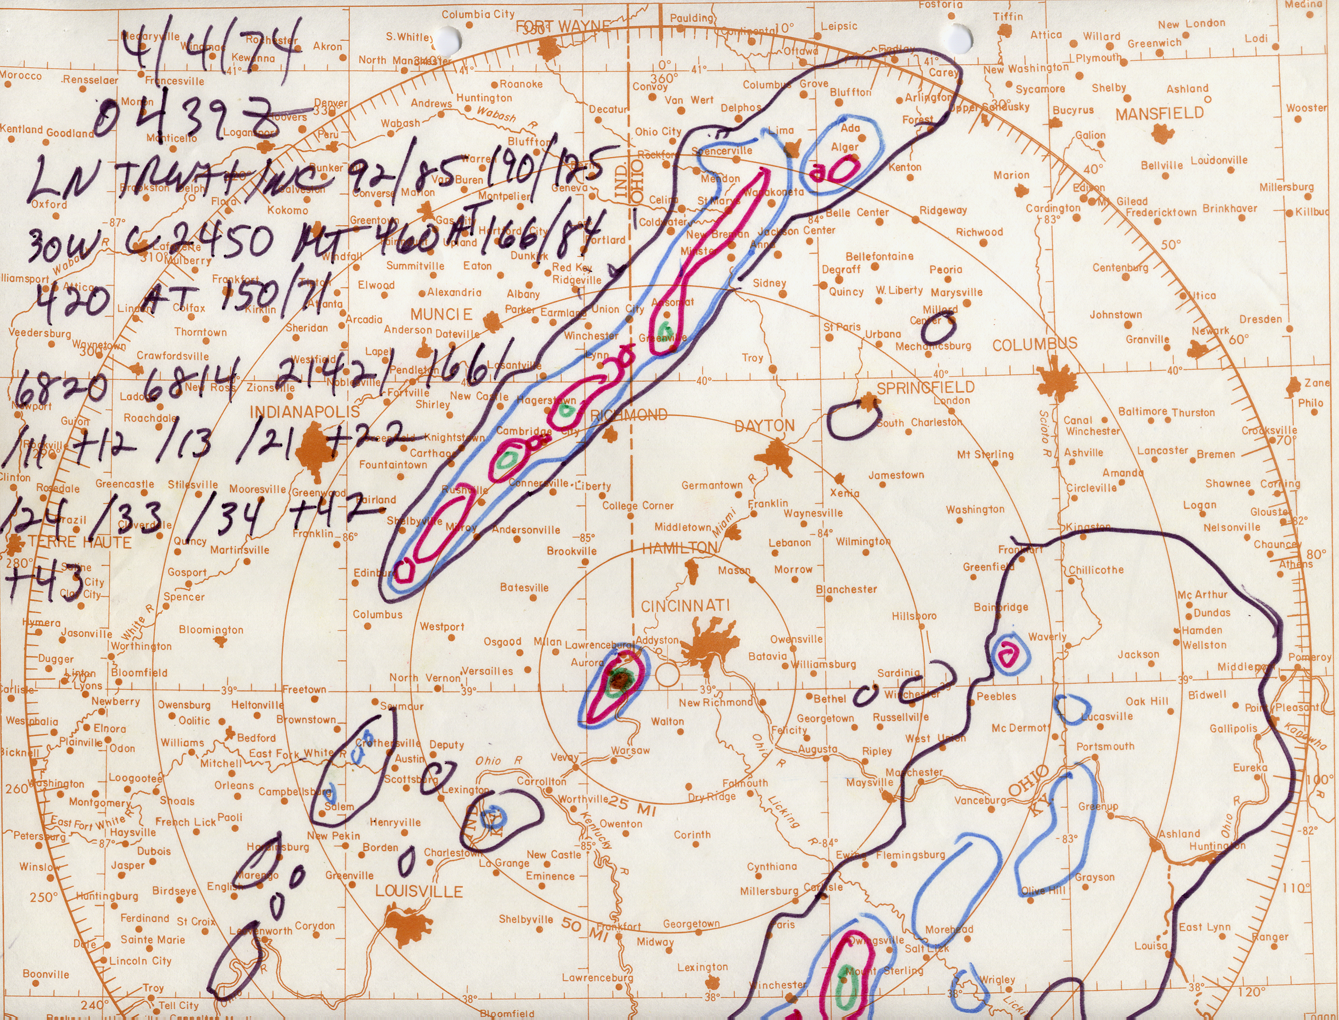 4/4/74
0439Z
LN TRW++/NC 92/85 190/125
30W C2450 MT 460 AT 166/84
420 AT 150/71
6820 6814 21421 1661
/11 +12 /13 /21 +22
/24 /33 /34 +42
+43
Columbia City
FORT WAYNE
Paulding
Leipsic
Fostoria
Tiffin
New London
Medina
S. Whitley
Continental
Ottawa
Findlay
Attica
Willard
Greenwich
Lodi
Akron
Rochester
Kewanna
Carey
New Washington
Plymouth
Morocco
Rensselaer
Francesville
Roanoke
Convoy
Van Wert
Delphos
Columbus Grove
Bluffton
Arlington
Upper Sandusky
Sycamore
Bucyrus
Shelby
Ashland
MANSFIELD
Wooster
Kentland
Goodland
Monticello
Logansport
Denver
Peru
Andrews
Huntington
Wabash
Wabash R
Decatur
Bluffton
Ohio City
Rockford
Spencerville
Lima
Ada
Alger
Forest
Kenton
Marion
Galion
Bellville
Loudonville
Millersburg
Oxford
Flora
Kokomo
Marion
Van Buren
Montpelier
Geneva
IND.
OHIO
Celina
Mendon
St Marys
Wapakoneta
Belle Center
Ridgeway
Cardington
Edison
Mt Gilead
Fredericktown
Brinkhaver
Greentown
Gas City
Upland
Hartford City
Dunkirk
Portland
Coldwater
New Bremen
Minster
Anna
Jackson Center
Richwood
Bellefontaine
Mulberry
Frankfort
Windfall
Summitville
Eaton
Albany
Red Key
Ridgeville
Sidney
Degraff
Quincy
W. Liberty
Peoria
Marysville
Centenburg
Utica
Elwood
Alexandria
Parker
Farmland
Union City
Ansonia
Colfax
Kirklin
Atlanta
Arcadia
MUNCIE
Anderson
Dateville
Winchester
Greenville
Troy
St Paris
Urbana
Mechanicsburg
Millard Center
Johnstown
Granville
Newark
Dresden
Veedersburg
Waynetown
Crawfordsville
Thorntown
Sheridan
Lapel
Pendleton
Losantville
Lynn
COLUMBUS
Zane
Philo
Ladoga
Roachdale
New Ross
Zionsville
Fortville
Shirley
New Castle
Hagerstown
RICHMOND
INDIANAPOLIS
Knightstown
Carthage
Cambridge City
DAYTON
SPRINGFIELD
London
South Charleston
Canal Winchester
Baltimore
Thurston
Crooksville
Fountaintown
Rushville
Connersville
Liberty
Mt Sterling
Ashville
Lancaster
Bremen
Amanda
Circleville
Scioto R
Clinton
Rosedale
Greencastle
Stilesville
Mooresville
Greenwood
Fairland
Germantown
Jamestown
Xenia
Shawnee
Corning
Logan
Glouster
Brazil
Cloverdale
Franklin
Shelbyville
Milroy
Andersonville
College Corner
Middletown
Miami R
Franklin
Waynesville
Washington
Kingston
Nelsonville
TERRE HAUTE
Quincy
Martinsville
Brookville
HAMILTON
Lebanon
Wilmington
Frankfort
Chauncey
Athens
Saline City
Clay City
Gosport
Edinburg
Batesville
Mason
Morrow
Blanchester
Greenfield
Chillicothe
Spencer
Columbus
CINCINNATI
Hillsboro
Bainbridge
Mc Arthur
Dundas
Hymera
Jasonville
White R
Bloomington
Westport
Osgood
Milan
Lawrenceburg
Addyston
Owensville
Waverly
Hamden
Wellston
Worthington
Dugger
Linton
Bloomfield
Versailles
Aurora
Batavia
Williamsburg
Sardinia
Jackson
Middleport
Pomeroy
Carlisle
Lyons
North Vernon
Winchester
Peebles
Bidwell
Point Pleasant
Newberry
Owensburg
Heltonville
Freetown
Seymour
New Richmond
Bethel
Georgetown
Russellville
Mc Dermott
Lucasville
Oak Hill
Gallipolis
Westphalia
Elnora
Oolitic
Bedford
Brownstown
Walton
Felicity
West Union
Portsmouth
Kanawha
Bicknell
Plainville
Odon
Williams
Mitchell
East Fork White R
Crothersville
Deputy
Vevay
Warsaw
Ohio R
Augusta
Ripley
Manchester
Washington
Loogootee
Orleans
Campbellsburg
Austin
Scottsburg
Carrollton
Falmouth
Maysville
OHIO
KY
Eureka
Montgomery
Shoals
Salem
Lexington
Worthville
25 MI
Dry Ridge
Licking R
Vanceburg
Greenup
Petersburg
East Fork White R
Haysville
French Lick
Paoli
New Pekin
Henryville
Kentucky R
Owenton
Corinth
Ashland
Huntington
Ohio R
Winslow
Dubois
Jasper
Hardinsburg
Marengo
Borden
Charlestown
La Grange
New Castle
Cynthiana
Ewing
Flemingsburg
Huntingburg
Birdseye
English
Greenville
LOUISVILLE
Eminence
Millersburg
Carlisle
Olive Hill
Grayson
Ferdinand
St Croix
Corydon
Shelbyville
50 MI
Frankfort
Georgetown
Paris
Morehead
East Lynn
Dale
Sainte Marie
Leavenworth
Midway
Owingsville
Salt Lick
Louisa
Ranger
Lincoln City
Boonville
Lawrenceburg
Lexington
Winchester
Mount Sterling
Wrigley
Troy
Tell City
Bloomfield
Licking
350° 360° 0° 10° 30° 40° 50° 60° 70° 80° 100° 110° 120°
240° 250° 260° 270° 280° 300° 310° 330° 340°
41° 40° 39° 38°
-87° -86° -85° -84° -83° -82°